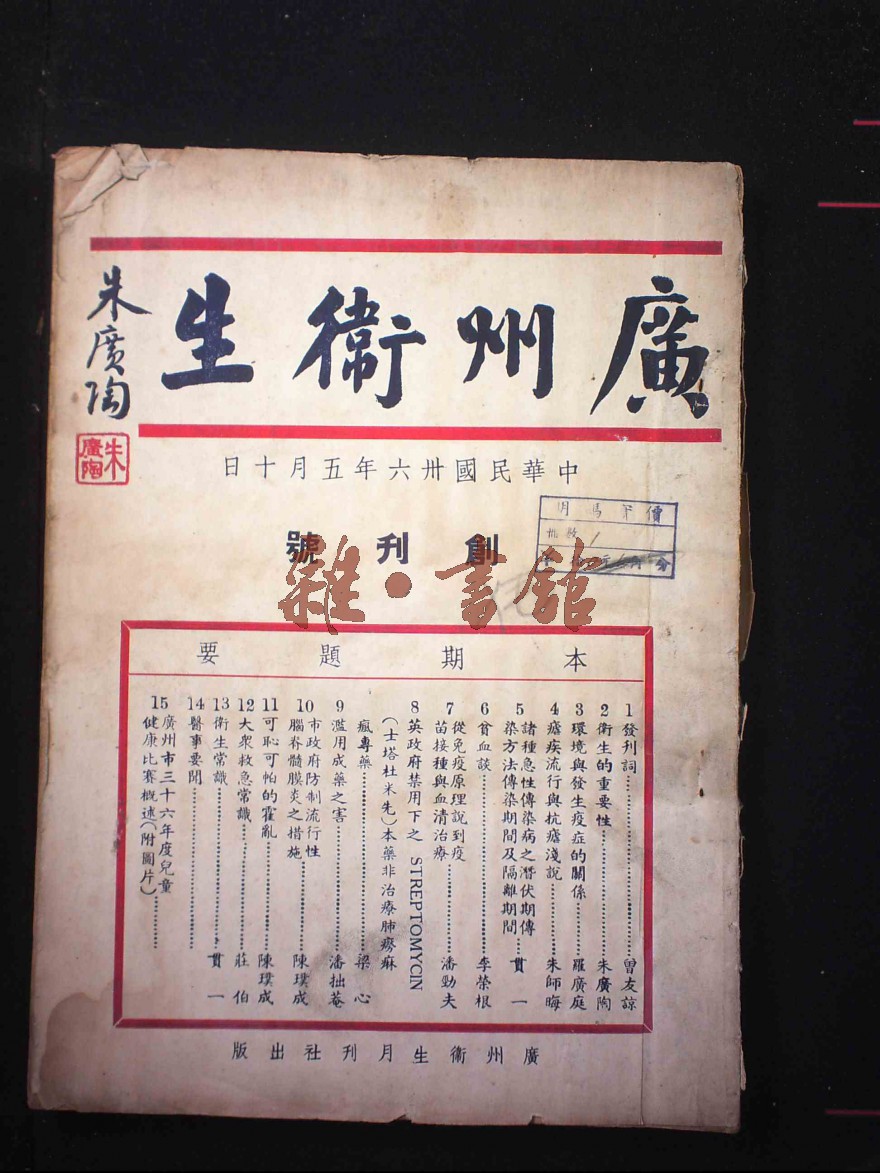 廣州衞生
朱廣陶
朱廣陶
中華民國卅六年五月十日
創刊號
雜·書舘
本期題要
1 發刊詞……曾友諒
2 衞生的重要性……朱廣陶
3 環境與發生疫症的關係……羅廣庭
4 瘧疾流行與抗瘧淺說……朱師晦
5 諸種急性傳染病之潛伏期傳
染方法傳染期間及隔離期間……貫一
6 貧血談……李榮根
7 從免疫原理說到疫
苗接種與血清治療……潘勁夫
8 英政府禁用下之 STREPTOMYCIN
(士塔杜米先)本藥非治療肺癆痳
瘋專藥……梁心
9 濫用成藥之害……潘拙菴
10 市政府防制流行性
腦脊髓膜炎之措施……陳璞成
11 可恥可怕的霍亂……陳璞成
12 大衆救急常識……莊伯
13 衞生常識……貫一
14 醫事要聞……
15 廣州市三十六年度兒童
健康比賽概述(附圖片)……
廣州衞生月刊社出版